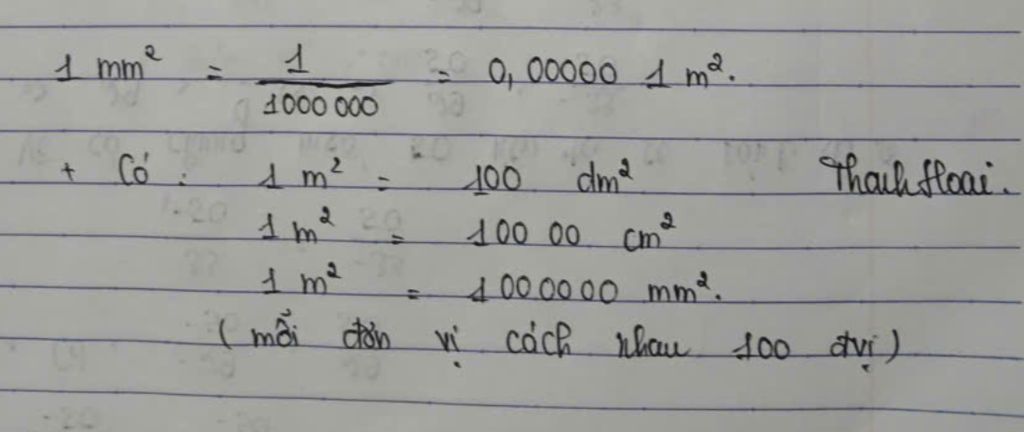 1 mm² = 1/1000 000 = 0,00000 1 m².
+ Có : 1 m² = 100 dm² Thanhfloai.
1 m² = 100 00 cm²
1 m² = 1 0000 00 mm².
( mỗi đơn vị cách nhau 100 đvị )